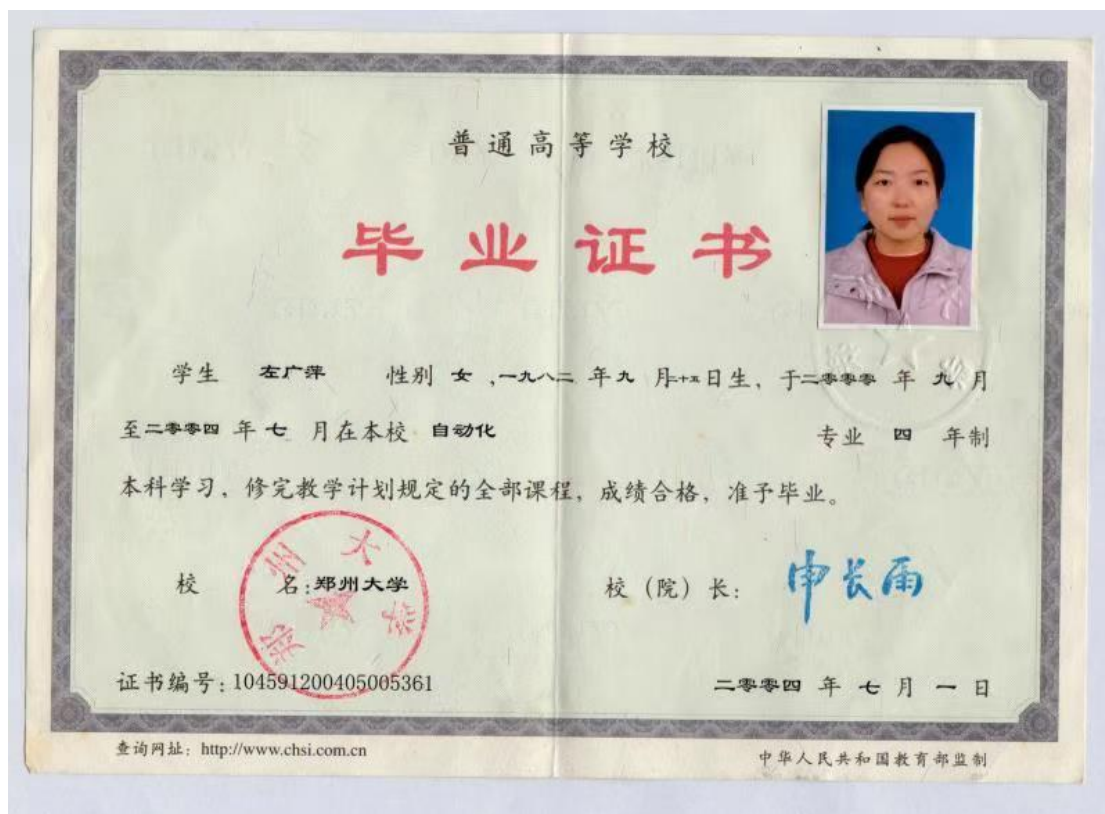 普通高等学校
毕业证书
学生 左广萍 性别 女 ,一九八二 年 九 月二十五日生，于二零零零 年 九 月
至二零零四 年 七 月在本校 自动化 专业 四 年制
本科学习，修完教学计划规定的全部课程，成绩合格，准予毕业。
郑州大学
校 名:郑州大学 校（院）长: 申长雨
证书编号: 104591200405005361 二零零四 年 七 月 一 日
查询网址: http://www.chsi.com.cn 中华人民共和国教育部监制